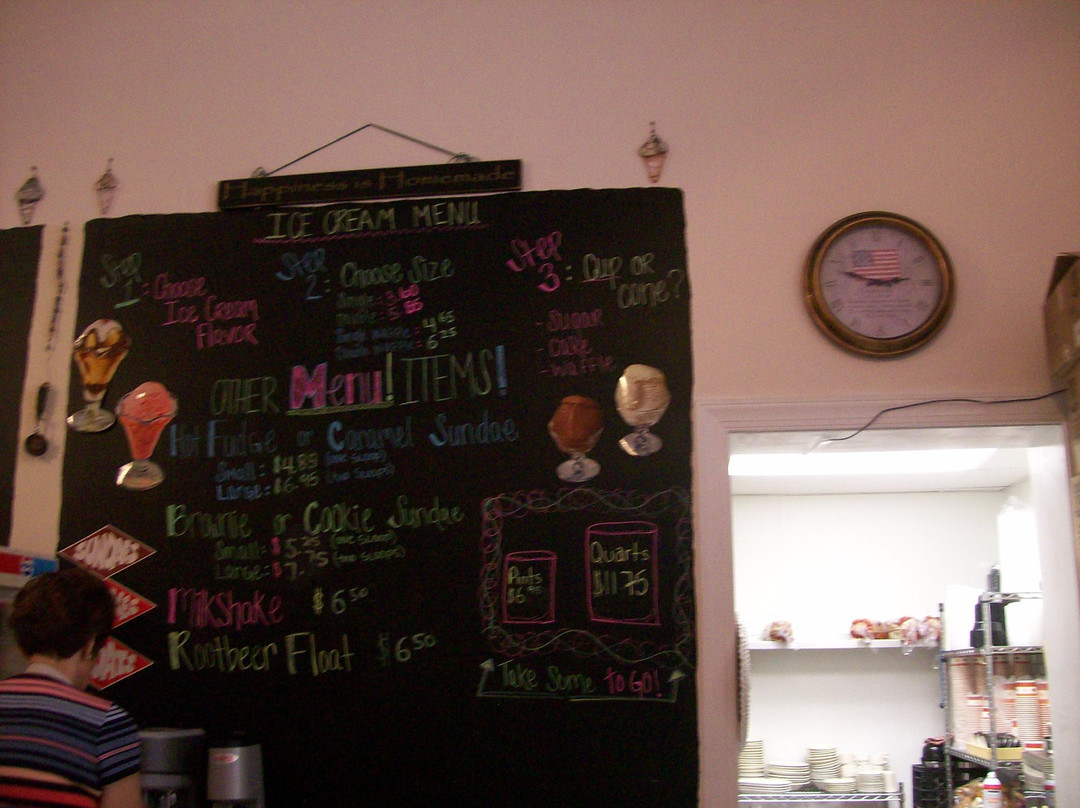 Happiness is Homemade
ICE CREAM MENU
Step 1: Choose
Ice Cream
Flavor
Step 2: Choose Size
Single: 3.60
Double: 5.
4.65
6.25
Step 3: Cup or
cone?
- Sugar
- Cake
- Waffle
OTHER Menu! ITEMS!
Hot Fudge or Caramel Sundae
Small: $4.89 (one scoop)
Large: $6.95 (two scoops)
Brownie or Cookie Sundae
Small: $5.25 (one scoop)
Large: $7.75 (two scoops)
Milkshake $6.50
Rootbeer Float $6.50
SUNDAES
Pints
$6.
Quarts
$11.75
Take Some to Go!